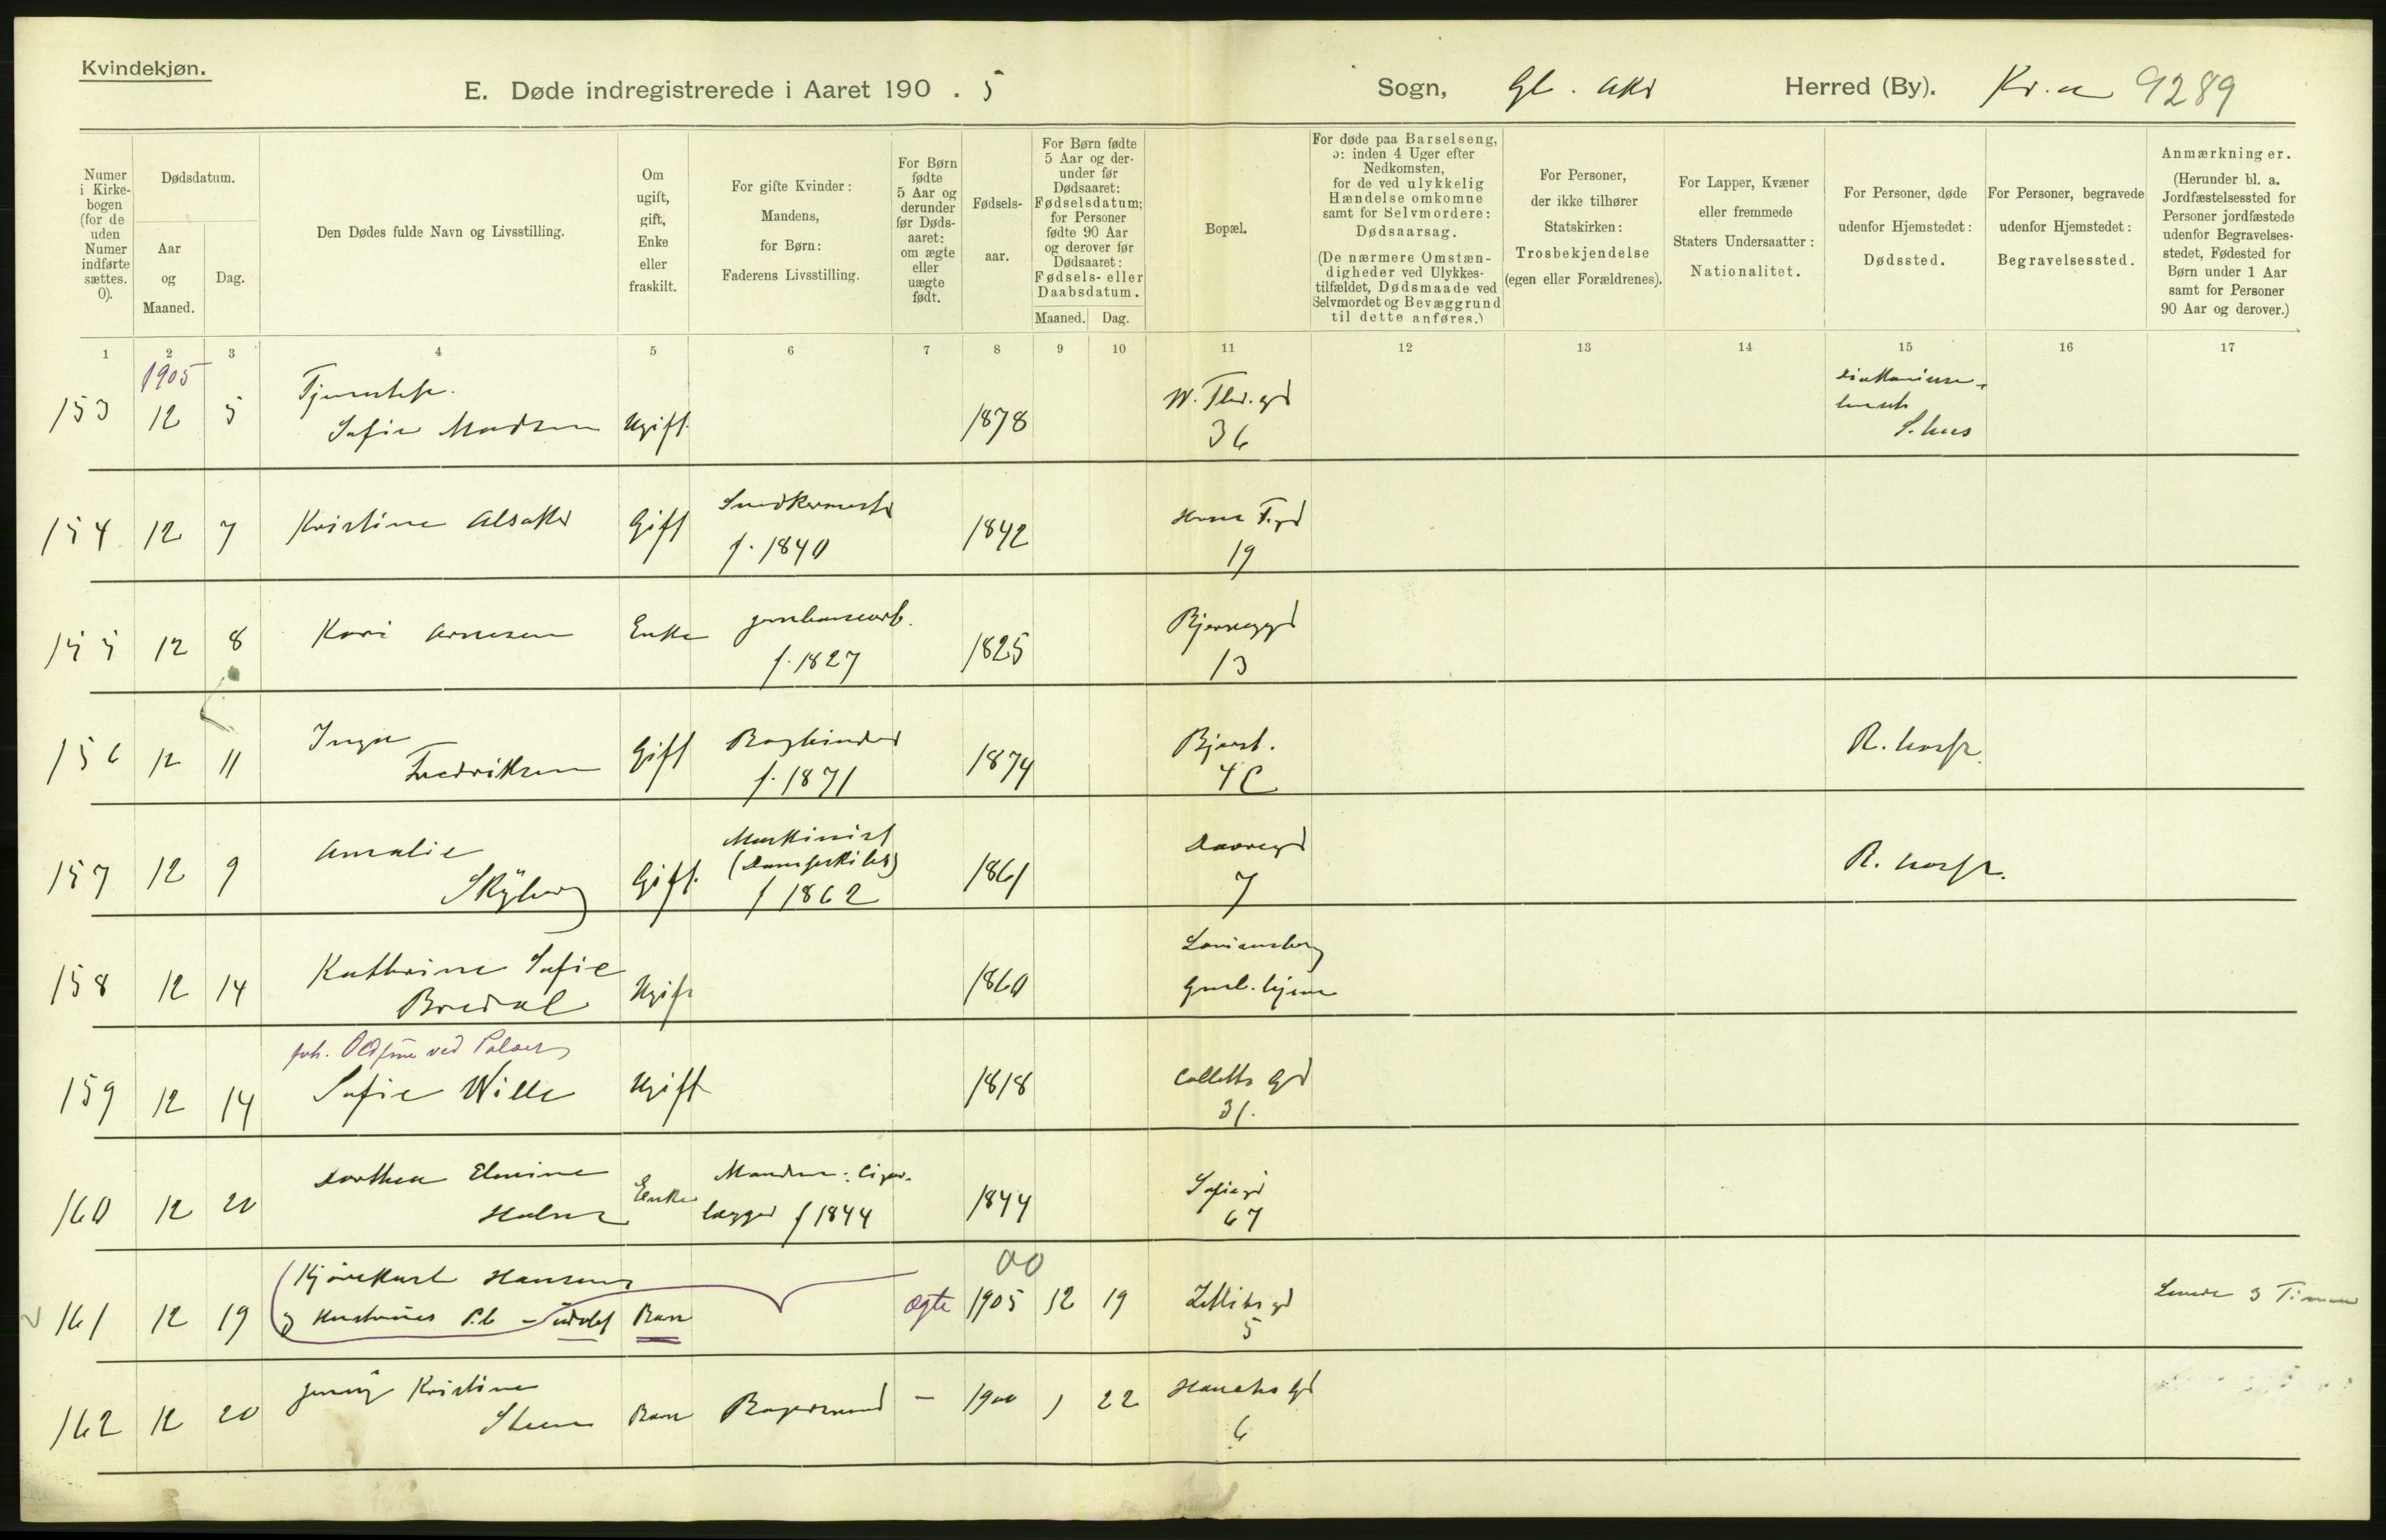 Kvindekjøn.
E. Døde indregistrerede i Aaret 190 . 5
Sogn, Gl. Akr Herred (By). Kr.a 9289
Numer
i Kirke-
bogen
(for de
uden
Numer
indførte
sættes.
0).
Dødsdatum.
Aar
og
Maaned.
Dag.
Den Dødes fulde Navn og Livsstilling.
Om
ugift,
gift,
Enke
eller
fraskilt.
For gifte Kvinder:
Mandens,
for Børn:
Faderens Livsstilling.
For Børn
fødte
5 Aar og
derunder
før Døds-
aaret:
om ægte
eller
uægte
født.
Fødsels-
aar.
For Børn fødte
5 Aar og der-
under før
Dødsaaret:
Fødselsdatum;
for Personer
fødte 90 Aar
og derover før
Dødsaaret:
Fødsels- eller
Daabsdatum.
Maaned. Dag.
Bopæl.
For døde paa Barselseng,
ɔ: inden 4 Uger efter
Nedkomsten,
for de ved ulykkelig
Hændelse omkomne
samt for Selvmordere:
Dødsaarsag.
(De nærmere Omstæn-
digheder ved Ulykkes-
tilfældet, Dødsmaade ved
Selvmordet og Bevæggrund
til dette anføres.)
For Personer,
der ikke tilhører
Statskirken:
Trosbekjendelse
(egen eller Forældrenes).
For Lapper, Kvæner
eller fremmede
Staters Undersaatter:
Nationalitet.
For Personer, døde
udenfor Hjemstedet:
Dødssted.
For Personer, begravede
udenfor Hjemstedet:
Begravelsessted.
Anmærkninger.
(Herunder bl. a.
Jordfæstelsessted for
Personer jordfæstede
udenfor Begravelses-
stedet, Fødested for
Børn under 1 Aar
samt for Personer
90 Aar og derover.)
1 2 3 4 5 6 7 8 9 10 11 12 13 14 15 16 17
1905
153 12 5 Sofie Madsen Ugift 1878 36
S.hus
154 12 7 Kristine Alsaker Gift f. 1840 1842 19
155 12 8 Kari Arnesen Enke f. 1827 1825 13
156 12 11 Inga
Fredriksen Gift Bogbinder
f. 1871 1874 Bjerst.
4C R. hosp.
157 12 9 Amalie
Skyberg Gift. Maskinist
(Dampskibs)
f 1862 1861 Davregd
7 R. hosp.
158 12 14 Kathrine Sofie
Bredal Ugift 1860 Lovisenberg
Gml. hjem
159 12 14 Sofie Wille Ugift 1818 Colletts Gd
31.
160 12 20 Dorthea Elmine
Holm Enke Manden: Cigar-
lægger f 1844 1844 Sofiegd
67
161 12 19 Kjørekarl Hansens
og Hustrues Pb - udøbt Barn ægte 1905 12 19 5
00
Levede 3 Timer
162 12 20 Jenny Kristine
Steen Barn Bagersvend — 1900 1 22 6